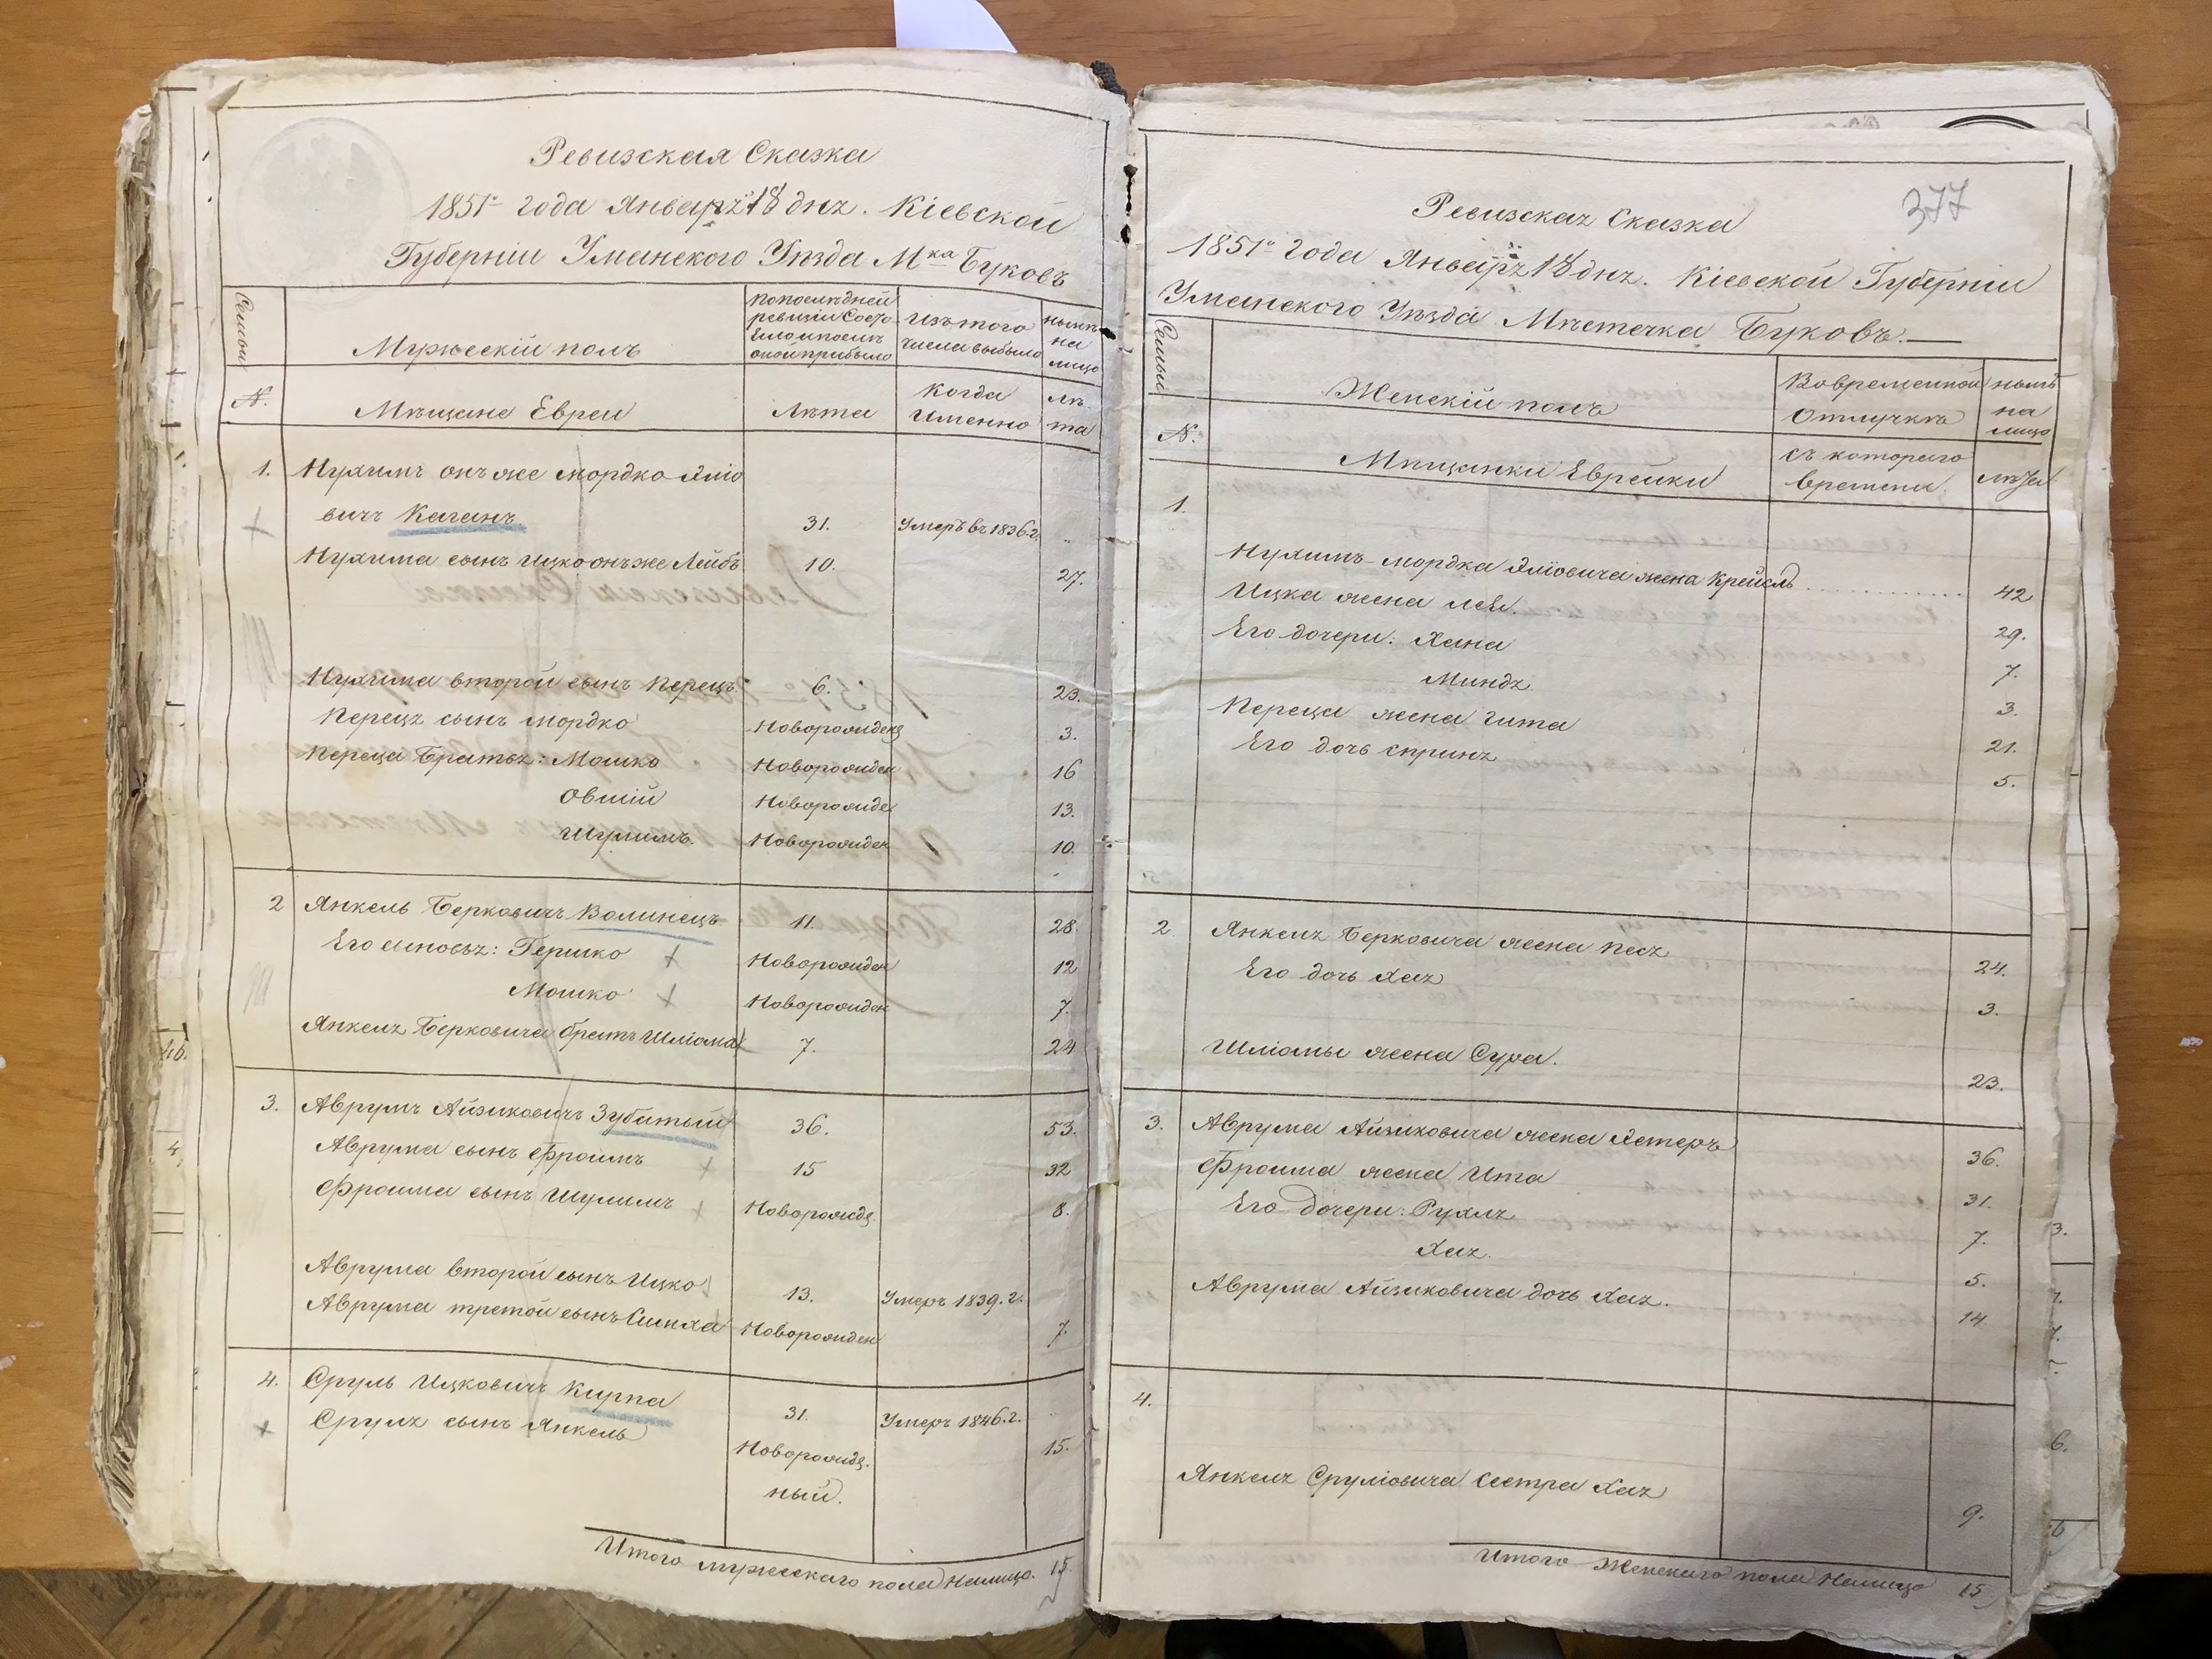 Ревизская Сказка
1851го года Января 18 дня. Кіевской
Губерніи Уманскаго Уѣзда Мка Буковъ
Семьи
Мужескій полъ
По послѣдней
ревизіи состо
яло и послѣ
оной прибыло
Изъ того
числа выбыло
нынѣ
на
лицо
№.
Мѣщане Евреи
Лѣта
Когда
Именно
лѣ
та
1. Нухимъ онъ же Мордко Яліо
вичъ Каганъ 31. Умеръ въ 1836 г. ..
Нухима сынъ Ицко онъ же Лейбъ 10. 27.
Нухима второй сынъ Перецъ 6. 23.
Переця сынъ Мордко Новорожденъ 3.
Переца Братья: Мошко Новорожден 16
Овшій Новорожде 13.
Шулимъ. Новорожден 10.
2 Янкель Берковичъ Волинецъ 11. 28.
Его сыновья: Гершко Новорожден 12
Мошко Новорожден 7.
Янкеля Берковича братъ Шліома 7. 24
3. Аврумъ Айзиковичъ Зубатый 36. 53.
Аврума сынъ Фроимъ 15 32
Фроима сынъ Шулимъ Новорожд. 8.
Аврума второй сынъ Ицко 13. Умеръ 1839. г.
Аврума третой сынъ Симха Новорожден 7.
4. Сруль Ицковичъ Кирпа 31. Умеръ 1846. г.
Сруля сынъ Янкель Новорожд. 15.
ный.
Итого мужескаго пола Налицо. 15.
377
Ревизская Сказка
1851го года Января 18 дня. Кіевской Губерніи
Уманскаго Уѣзда Мѣстечка Буковъ.—
Семьи
Женскій полъ
Во временной
Отлучкѣ
нынѣ
на
лицо
№.
Мѣщанки Еврейки
съ котораго
времени.
лѣта
1.
Нухимъ-Мордка Яліовича жена Крейслъ 42
Ицка жена Лея. 29.
Его дочери: Хана 7.
Миндя 3.
Переца жена Гита 21.
Его дочь Сприня 5.
2 Янкеля Берковича жена Песя 24.
Его дочь Хая 3.
Шліомы жена Сура. 23.
3. Аврума Айзиковича жена Эстеръ 36.
Фроима жена Ита 31.
Его дочери: Рухля 7.
Хая. 5.
Аврума Айзиковича дочь Хая. 14
4.
Янкеля Сруліовича Сестра Хая 9.
Итого Женскаго пола Налицо 15